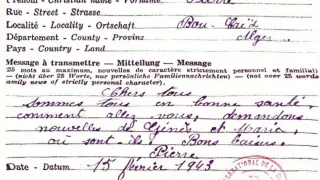 Prénom - Christian name - Vorname Pierre
Rue - Street - Strasse
Localité - Locality - Ortschaft Bou-Saïd
Département - County - Provinz Alger
Pays - Country - Land
Message à transmettre — Mitteilung — Message
(25 mots au maximum, nouvelles de caractère strictement personnel et familial)
— (nicht über 25 Worte, nur persönliche Familiennachrichten) — (not over 25 words
family news of strictly personal character).
Chers tous
Sommes tous en bonne santé.
comment allez vous, demandons
nouvelles de et Marie,
où sont-ils. Bons baisers.
Pierre
Date - Datum. 15 février 1943